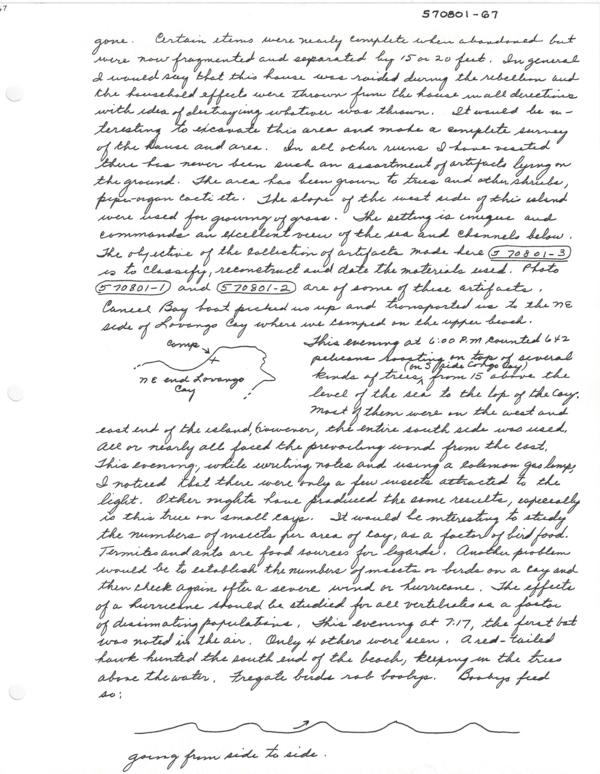 67
570801-67
gone. Certain items were nearly complete when abandoned but
were now fragmented and separated by 15 or 20 feet. In general
I would say that this house was raided during the rebellion and
the household effects were thrown from the house in all directions
with idea of destroying whatever was thrown. It would be in-
teresting to excavate this area and make a complete survey
of the house and area. In all other ruins I have visited
there has never been such an assortment of artifacts lying on
the ground. The area has been grown to trees and other shrubs,
pipe-organ cacti etc. The slope of the west side of this island
were used for growing of grass. The setting is unique and
commands an excellent view of the sea and channels below.
The objective of the collection of artifacts made here (570801-3)
is to classify, reconstruct and date the materials used. Photo
(570801-1) and (570801-2) are of some of these artifacts.
Caneel Bay boat picked us up and transported us to the NE
side of Lovango Cay where we camped on the upper beach.
camp
NE end Lovango
Cay
This evening at 6:00 P.M counted 642
pelicans roosting on top of several
(on S side Congo Cay)
kinds of trees, from 15 above the
level of the sea to the top of the Cay.
Most of them were on the west and
east end of the island, however, the entire south side was used.
All or nearly all faced the prevailing wind from the east.
This evening, while writing notes and using a Colemon gas lamp,
I noticed that there were only a few insects attracted to the
light. Other nights have produced the same results, especially
is this true on small cays. It would be interesting to study
the numbers of insects per area of cay, as a factor of bird food.
Termites and ants are food sources for lizards. Another problem
would be to establish the numbers of insects or birds on a cay and
then check again after a severe wind or hurricane. The effects
of a hurricane should be studied for all vertebrates as a factor
of dissimating populations. This evening at 7:17, the first bat
was noted in the air. Only 4 others were seen. A red-tailed
hawk hunted the south end of the beach, keeping in the trees
above the water. Fregate birds rob boobys. Boobys feed
so:
going from side to side.